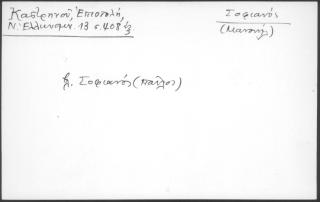 Καστρηνοῦ, Ἐπιστολή,
Ν. Ἑλληνομν. 13 σ. 408 ἑξ
Σοφιανός
(Μανουήλ)
βλ. Σοφιανός (Παῦλος)